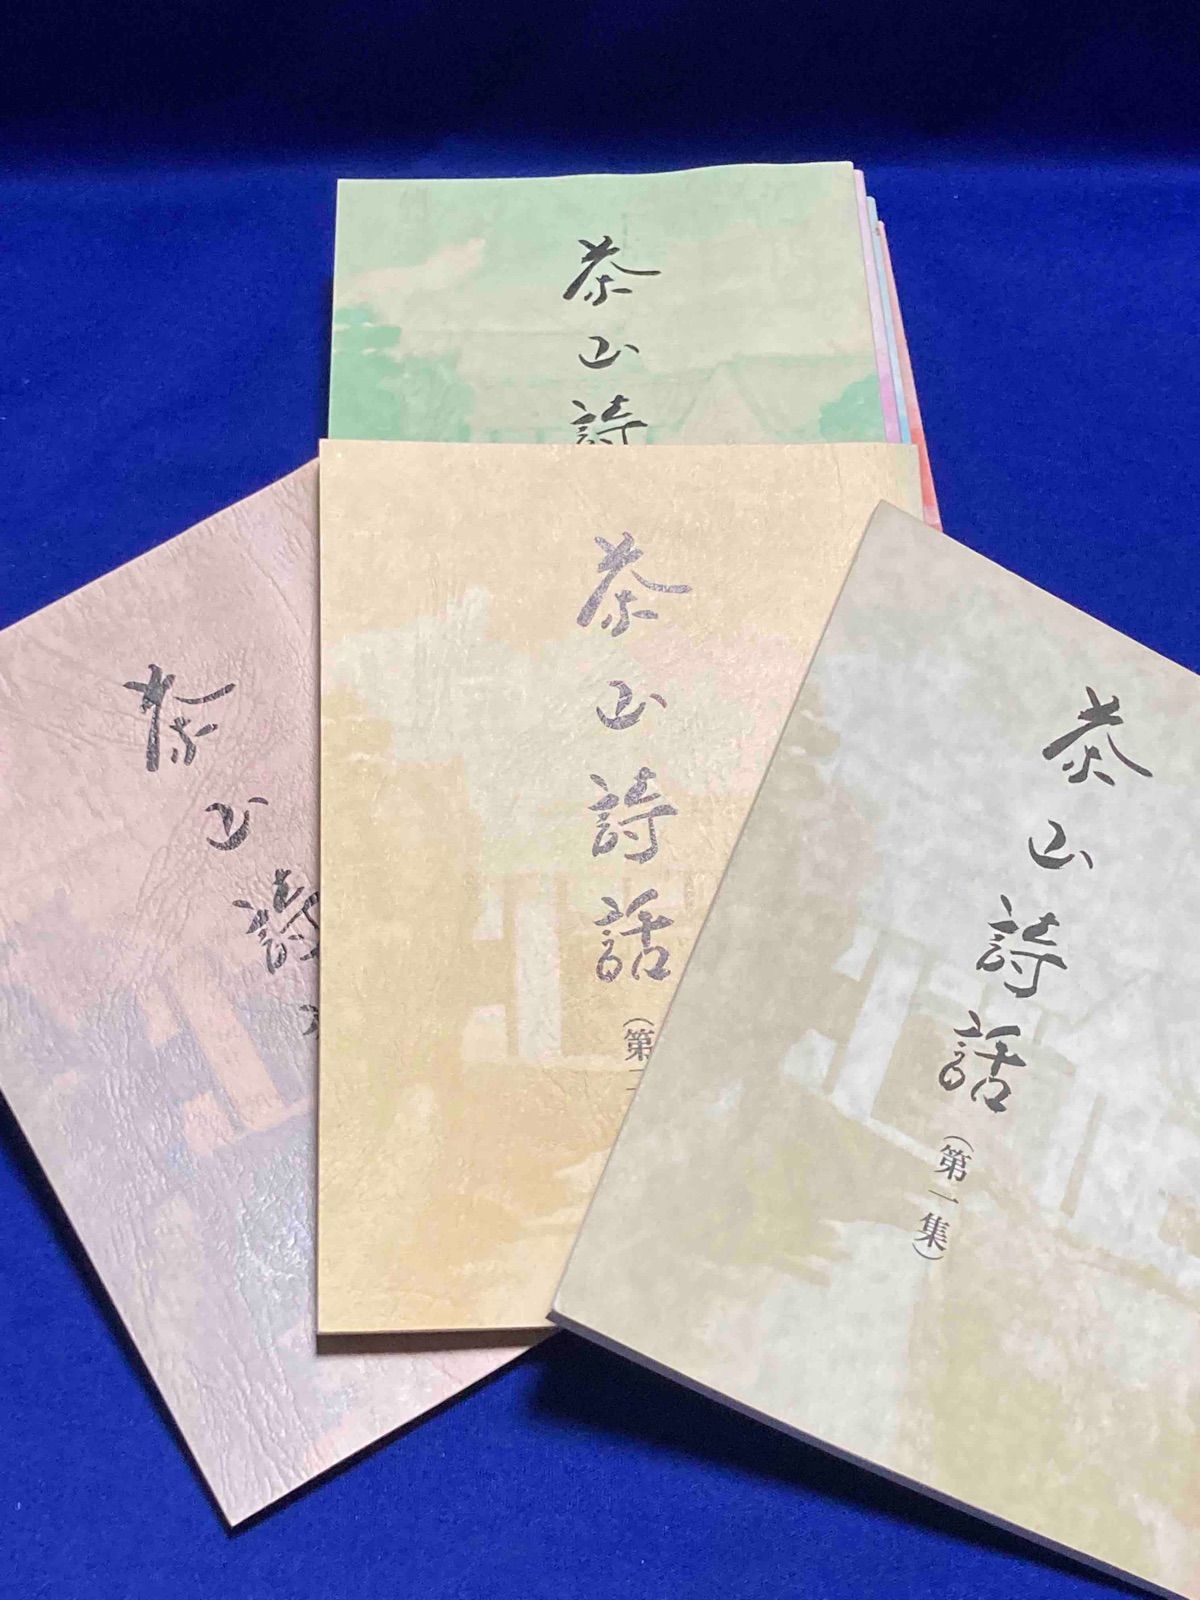 茶山詩
茶山詩話
(第
茶山詩
茶山詩話
(第一集)